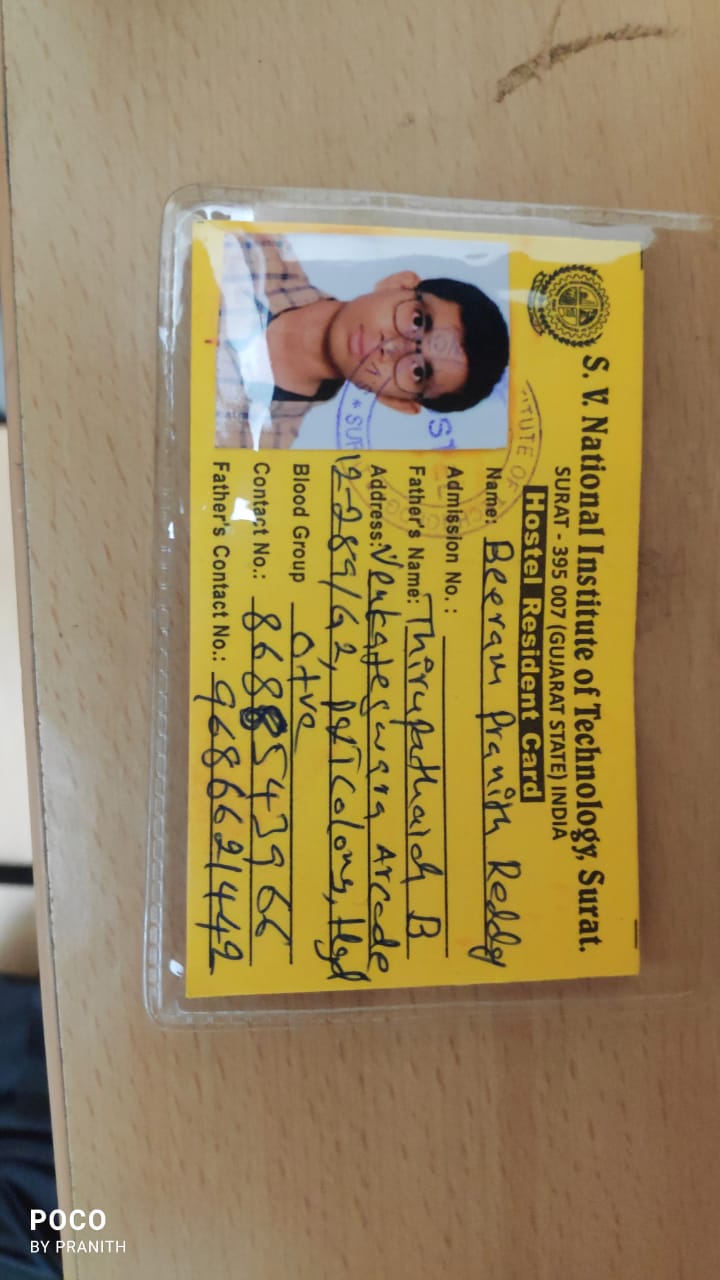 S. V. National Institute of Technology, Surat.
SURAT - 395 007 (GUJARAT STATE) INDIA
Hostel Resident Card
Name: Beeram Pranith Reddy
Admission No. :
Father's Name: Thirupathaiah B
Address: Venkateswara Arcade
12-289/G2, colony, Hyd
Blood Group O+ve
Contact No.: 8688543966
Father's Contact No.: 9686621442
TUTE OF
POCO
BY PRANITH